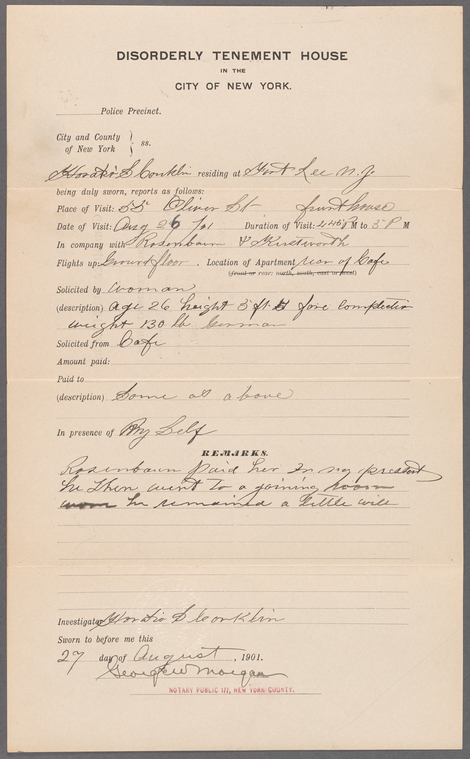 DISORDERLY TENEMENT HOUSE
IN THE
CITY OF NEW YORK.
Police Precinct.
City and County
of New York } ss.
Horatio S Conklin residing at Fort Lee N.J.
being duly sworn, reports as follows:
Place of Visit: 55 Oliver St front house
Date of Visit: Aug 26/01 Duration of Visit: 4.45 P M to 5 P M
In company with Rosenbaum &
Flights up: Ground floor. Location of Apartment, rear of Cafe
(front or rear; north, south, east or west)
Solicited by woman
(description) age 26 height 5 ft fore complection
weight 130 lb German
Solicited from Cafe
Amount paid:
Paid to
(description) Same as above
In presence of My Self
REMARKS.
Rosenbaum paid her In my presents
he then went to a joining room
he remained a little wile
Investigator Horatio S Conklin
Sworn to before me this
27 day of August, 1901.
George W Morgan
NOTARY PUBLIC 177, NEW YORK COUNTY.